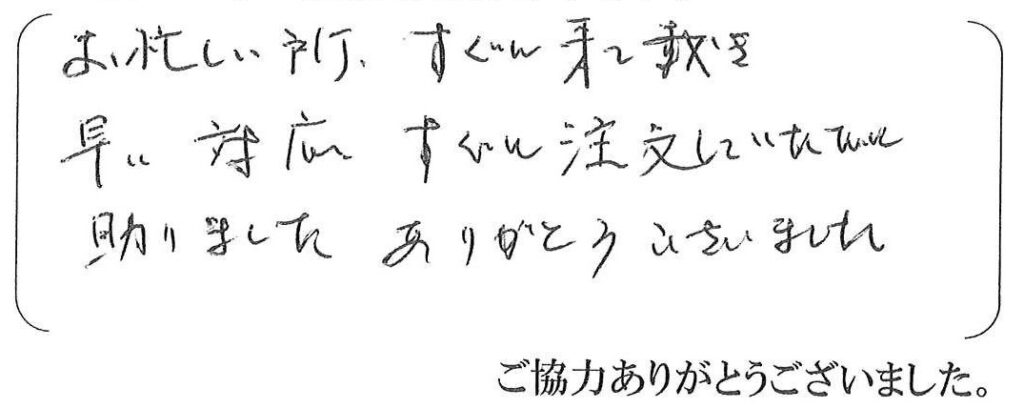 お忙しい所、すぐに来て戴き
早い対応、すぐに注文していただいて
助りました ありがとうございました
ご協力ありがとうございました。